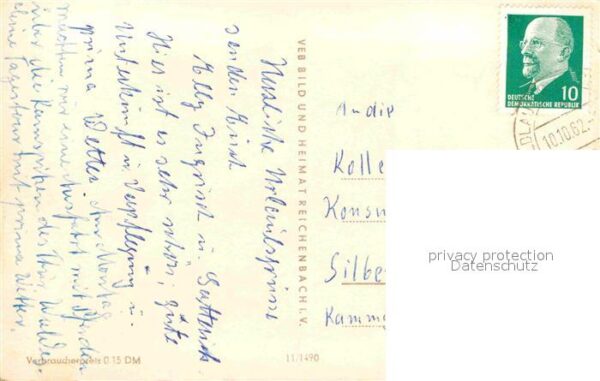 Herzliche Urlaubsgrüsse
senden Euch
Elly u.
Hier ist es sehr schön, gute
Unterkunft u. Verpflegung u.
prima Wetter. Am Montag
machten wir eine mit
über die des Thür. Waldes,
eine mit prima Wetter.
VEB BILD UND HEIMAT REICHENBACH I. V.
Verbraucherpreis 0.15 DM
11/1490
An die
Kolle
Konsu
Silbe
Kamm
DEUTSCHE
DEMOKRATISCHE REPUBLIK
10
10.10.62.
privacy protection
Datenschutz